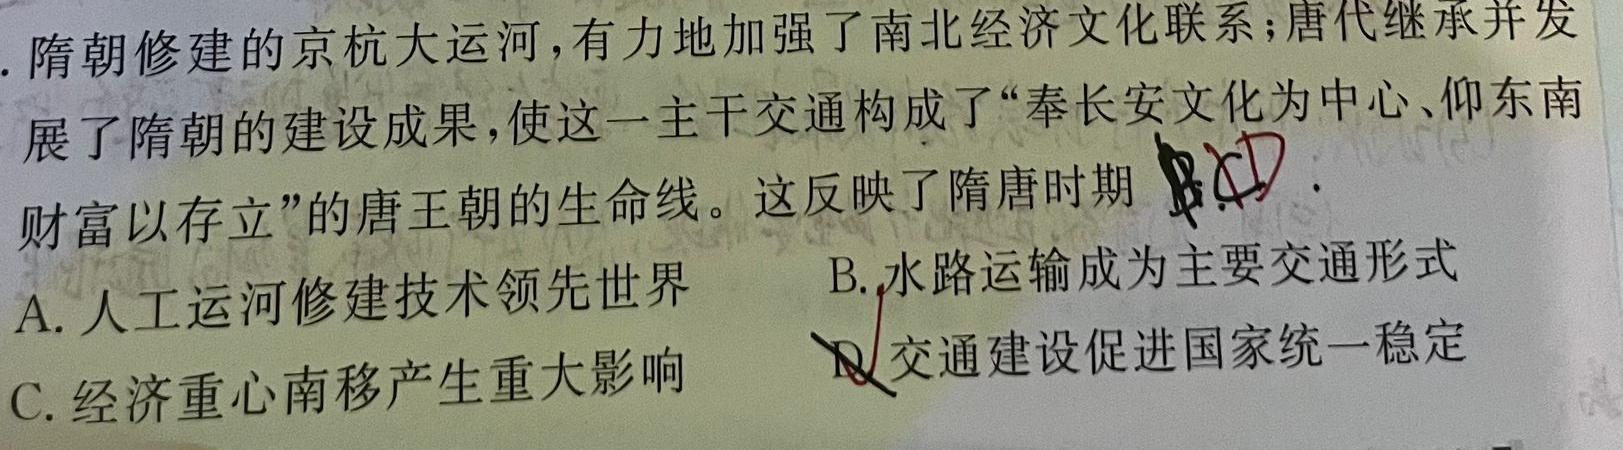 . 隋朝修建的京杭大运河,有力地加强了南北经济文化联系;唐代继承并发
展了隋朝的建设成果,使这一主干交通构成了“奉长安文化为中心、仰东南
财富以存立”的唐王朝的生命线。这反映了隋唐时期 D .
A. 人工运河修建技术领先世界 B. 水路运输成为主要交通形式
C. 经济重心南移产生重大影响 D 交通建设促进国家统一稳定